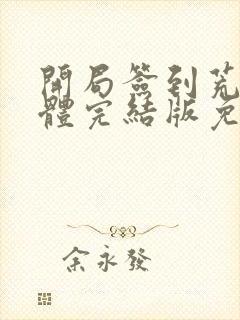 開局簽到荒
體完結版免
余永發